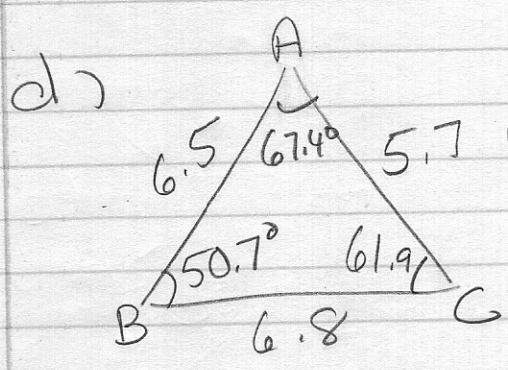 d)
A
6.5
67.4°
5.7
50.7°
61.9
B
6.8
C